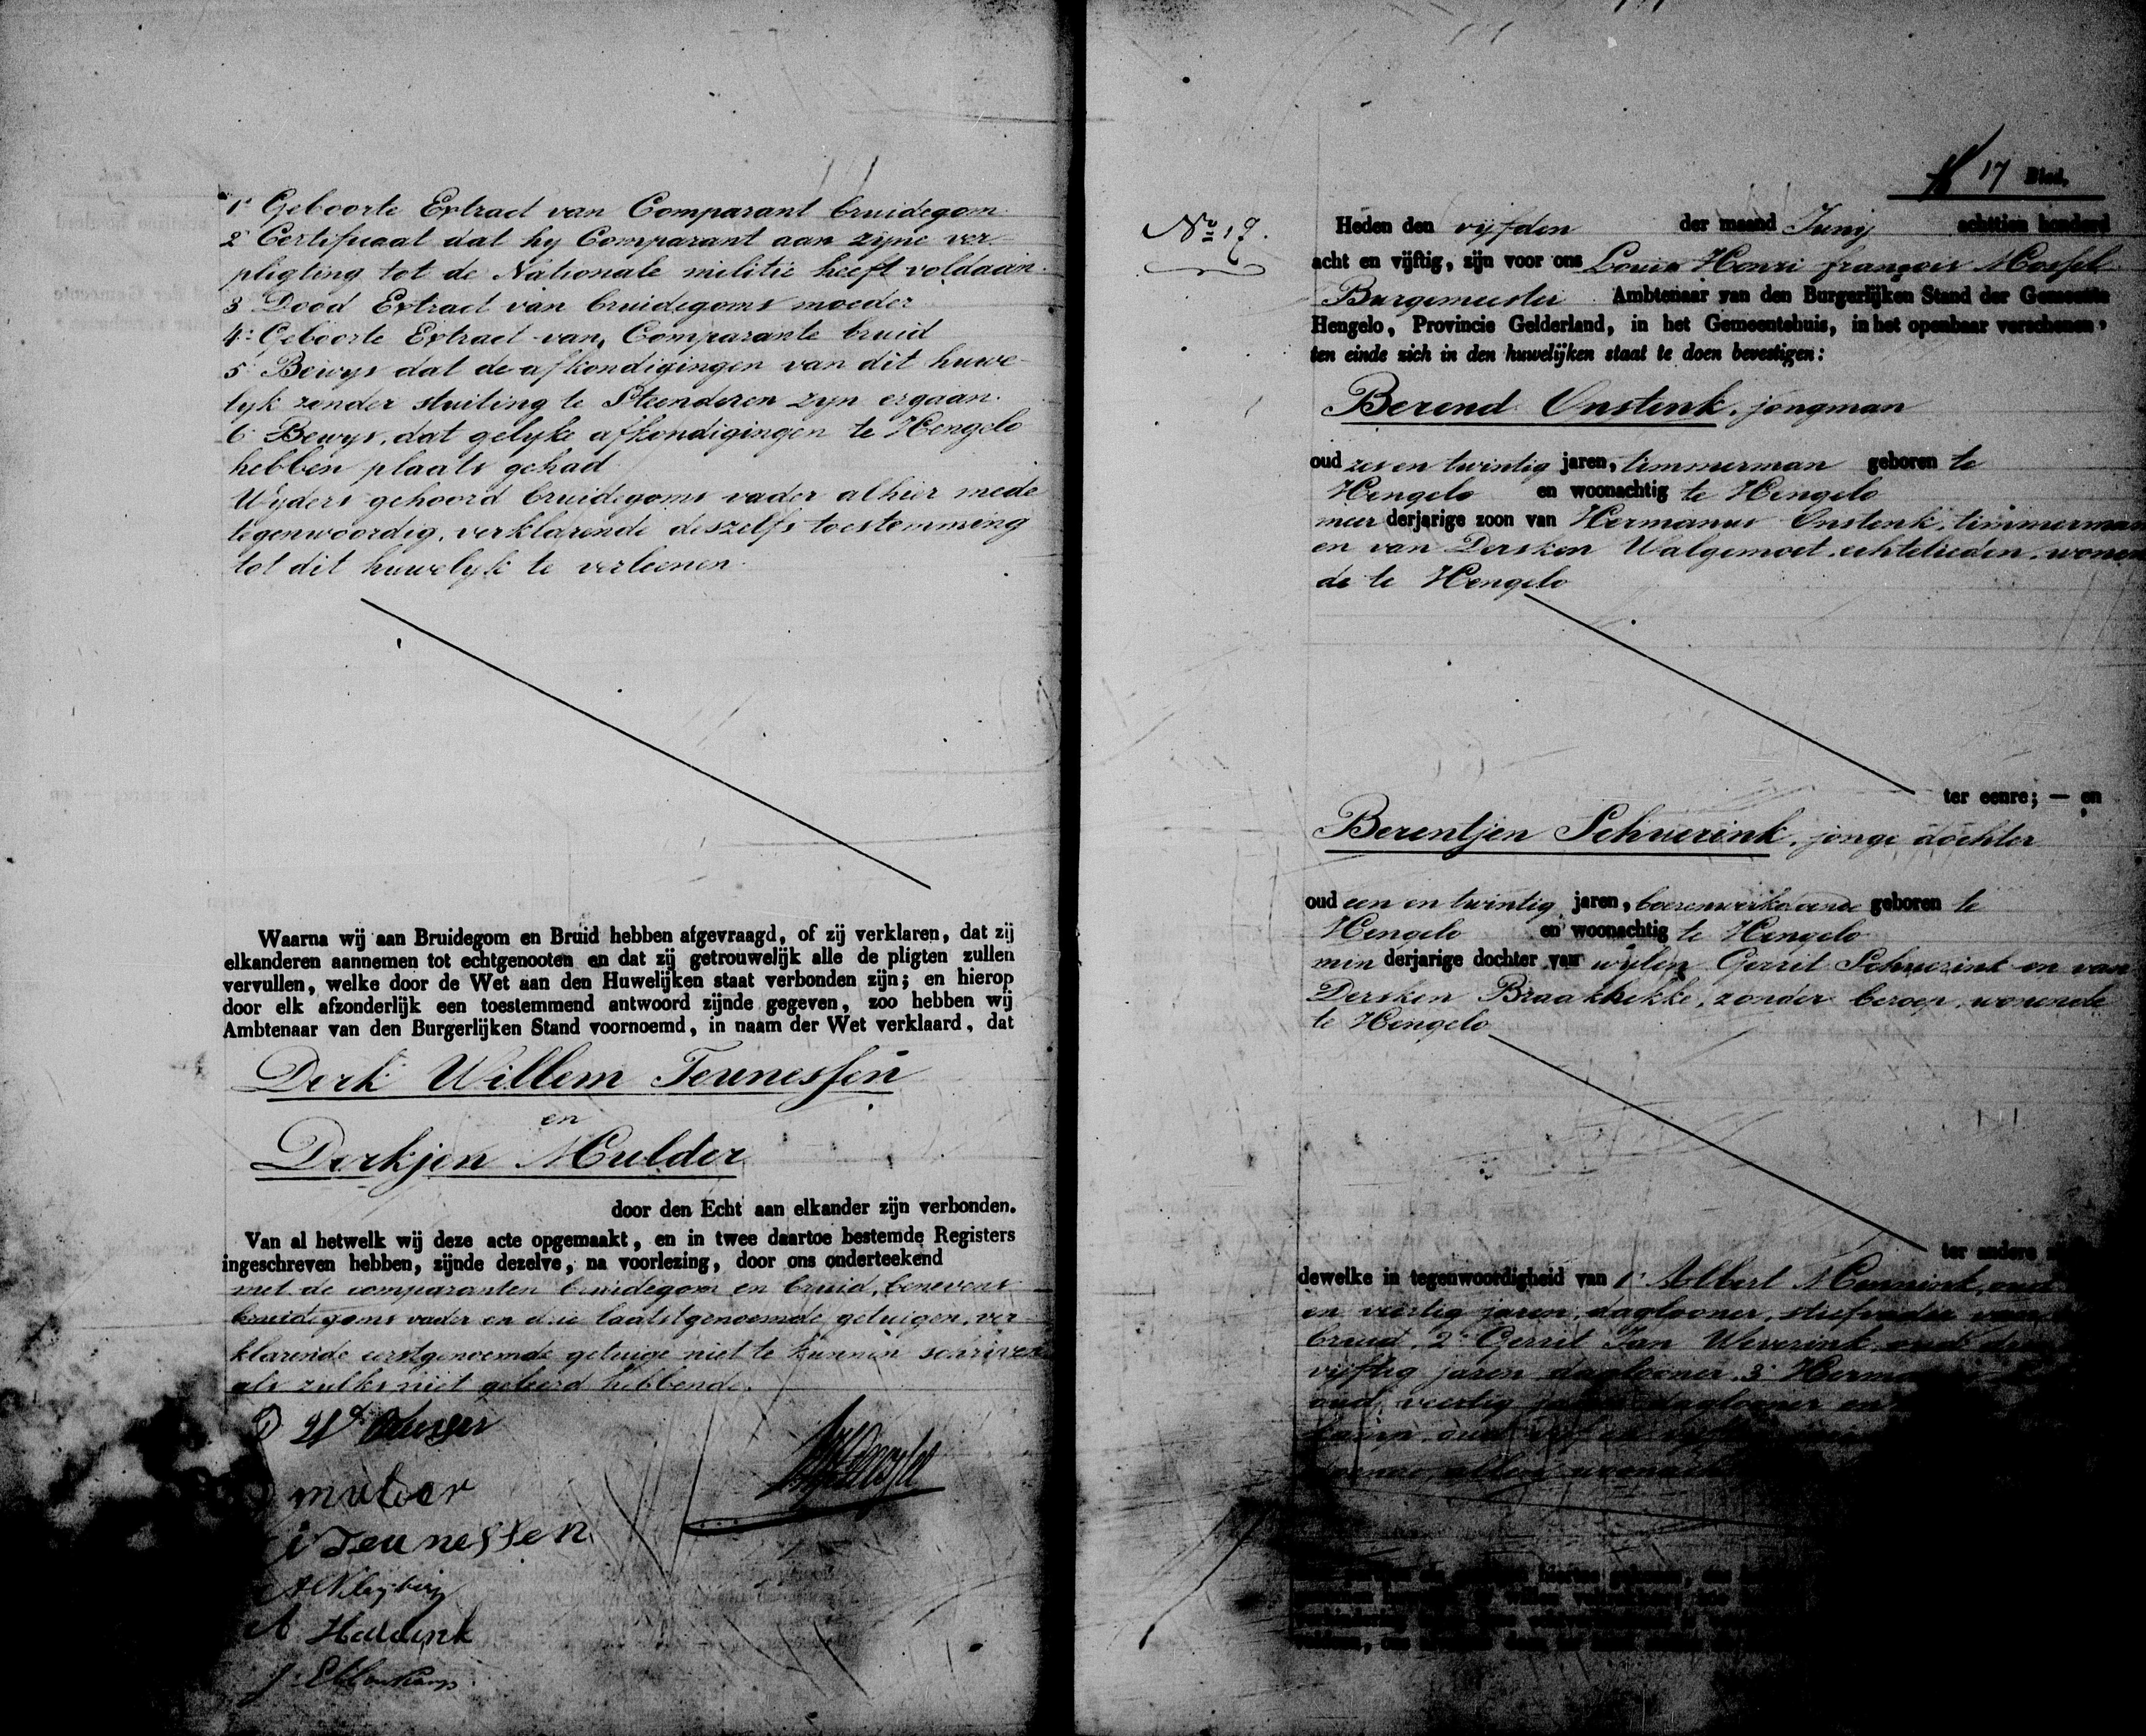 1° Geboorte Extract van Comparant bruidegom
2° Certificaat dat hy Comparant aan zyne ver-
pligting tot de Nationale militie heeft voldaan.
3 Dood Extract van bruidegoms moeder
4° Geboorte Extract van Comparante bruid
5 Bewys dat de afkondigingen van dit huwe-
lyk zonder stuiting te Steenderen zyn ergaan.
6 Bewys, dat gelyke afkondigingen te Hengelo
hebben plaats gehad
Wyders gehoord bruidegoms vader alhier mede
tegenwoordig, verklarende deszelfs toestemming
tot dit huwelyk te verleenen.
Waarna wij aan Bruidegom en Bruid hebben afgevraagd, of zij verklaren, dat zij
elkanderen aannemen tot echtgenooten en dat zij getrouwelijk alle de pligten zullen
vervullen, welke door de Wet aan den Huwelijken staat verbonden zijn; en hierop
door elk afzonderlijk een toestemmend antwoord zijnde gegeven, zoo hebben wij
Ambtenaar van den Burgerlijken Stand voornoemd, in naam der Wet verklaard, dat
Derk Willem Teunessen
en
Derkjen Mulder
door den Echt aan elkander zijn verbonden.
Van al hetwelk wij deze acte opgemaakt, en in twee daartoe bestemde Registers
ingeschreven hebben, zijnde dezelve, na voorlezing, door ons onderteekend
met de comparanten bruidegom en bruid, benevens
bruidegoms vader en drie laatstgenoemde getuigen, ver-
klarende eerstgenoemde getuige niet te kunnen schrijven
als zulks niet geleerd hebbende.
mulder
Teunessen
A
17 Blad.
No 17.
Heden den vyfden der maand Junij achttien honderd
acht en vijftig, zijn voor ons Louis Henri françois Mossel
Burgemeester Ambtenaar van den Burgerlijken Stand der Gemeente
Hengelo, Provincie Gelderland, in het Gemeentehuis, in het openbaar verschenen,
ten einde zich in den huwelijken staat te doen bevestigen:
Berend Onstenk, jongman
oud zes en twintig jaren, timmerman geboren te
Hengelo en woonachtig te Hengelo
meer derjarige zoon van Hermanus Onstenk, timmerman
en van Dersken Walgemoet, echtelieden, wonen
de te Hengelo
ter eenre; — en
Berentjen Schuerink, jonge dochter
oud een en twintig jaren, boerenwerk doende geboren te
Hengelo en woonachtig te Hengelo
min derjarige dochter van wylen Gerrit Schuerink en van
Dersken Braakhekke, zonder beroep, wonende
te Hengelo
ter andere
dewelke in tegenwoordigheid van 1° Albert Mennink, oud
en veertig jaren, daglooner, stiefvader van
bruid, 2° Gerrit Jan Weverink oud
vyftig jaren daglooner, 3°
oud veertig jaren daglooner en